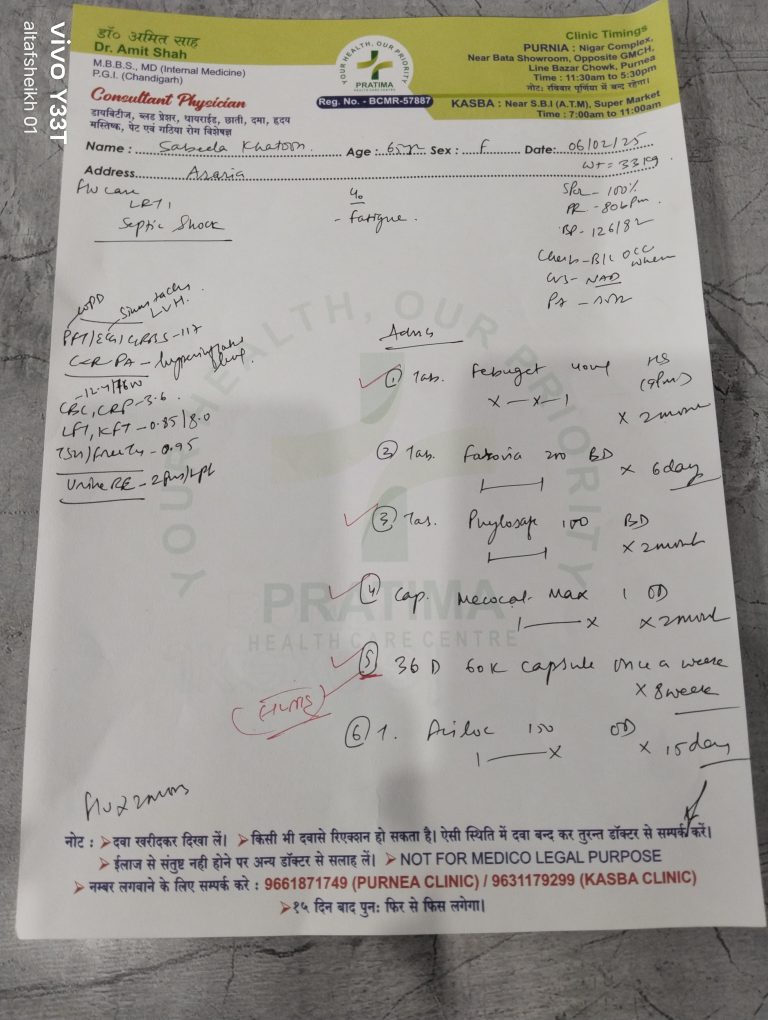 डॉ० अमित साह
Dr. Amit Shah
M.B.B.S., MD (Internal Medicine)
P.G.I. (Chandigarh)
Consultant Physician
डायबिटीज, ब्लड प्रेशर, थायराईड, छाती, दमा, हृदय
मस्तिष्क, पेट एवं गठिया रोग विशेषज्ञ
YOUR HEALTH, OUR PRIORITY
PRATIMA
Reg. No. - BCMR-57887
Clinic Timings
PURNIA : Nigar Complex,
Near Bata Showroom, Opposite GMCH,
Line Bazar Chowk, Purnea
Time : 11:30am to 5:30pm
नोट: रविवार पूर्णिया में बन्द रहेगा।
KASBA : Near S.B.I (A.T.M), Super Market
Time : 7:00am to 11:00am
Name : Sabeela Khatoon Age : 65yr Sex : F Date: 06/02/25
Address Araria
Wt = 33 kg
LRTI
Septic Shock
- Fatigue.
SPO2 - 100%
PR - 80bpm.
BP - 126/82
CVS - NAD
LVH.
- 117
CBC, CRP - 3.6
LFT, KFT - 0.85/8.0
- 0.95
Urine RE -
YOUR HEALTH, OUR PRIORITY
PRATIMA
HEALTH CARE CENTRE
1 Tab. Febuget 40mg HS (9pm)
x - x - 1 x 2 month
2 Tab. 200 BD x 6 day
3 Tab. 100 BD
x 2 month
4 Cap. Mecocal Max 1 OD
1 x x 2 month
5 36 D 60K capsule once a week
x 8 week
6 T. 150 OD
1 x x 15 day
नोट : ➤दवा खरीदकर दिखा लें। ➤किसी भी दवासे रिएक्शन हो सकता है। ऐसी स्थिति में दवा बन्द कर तुरन्त डॉक्टर से सम्पर्क करें।
➤ईलाज से संतुष्ट नही होने पर अन्य डॉक्टर से सलाह लें। ➤NOT FOR MEDICO LEGAL PURPOSE
➤नम्बर लगवाने के लिए सम्पर्क करे : 9661871749 (PURNEA CLINIC) / 9631179299 (KASBA CLINIC)
➤१५ दिन बाद पुन: फिर से फिस लगेगा।
vivo Y33T
altarsheikh 01